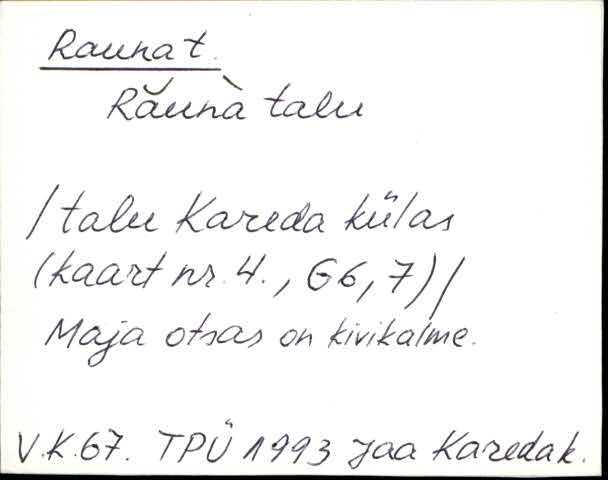 Rauna t.
Răunà talu
/talu Kareda külas
(kaart nr. 4., G6,7)/
Maja otsas on kivikalme.
V.K.67. TPÜ 1993 Jaa Kareda k.